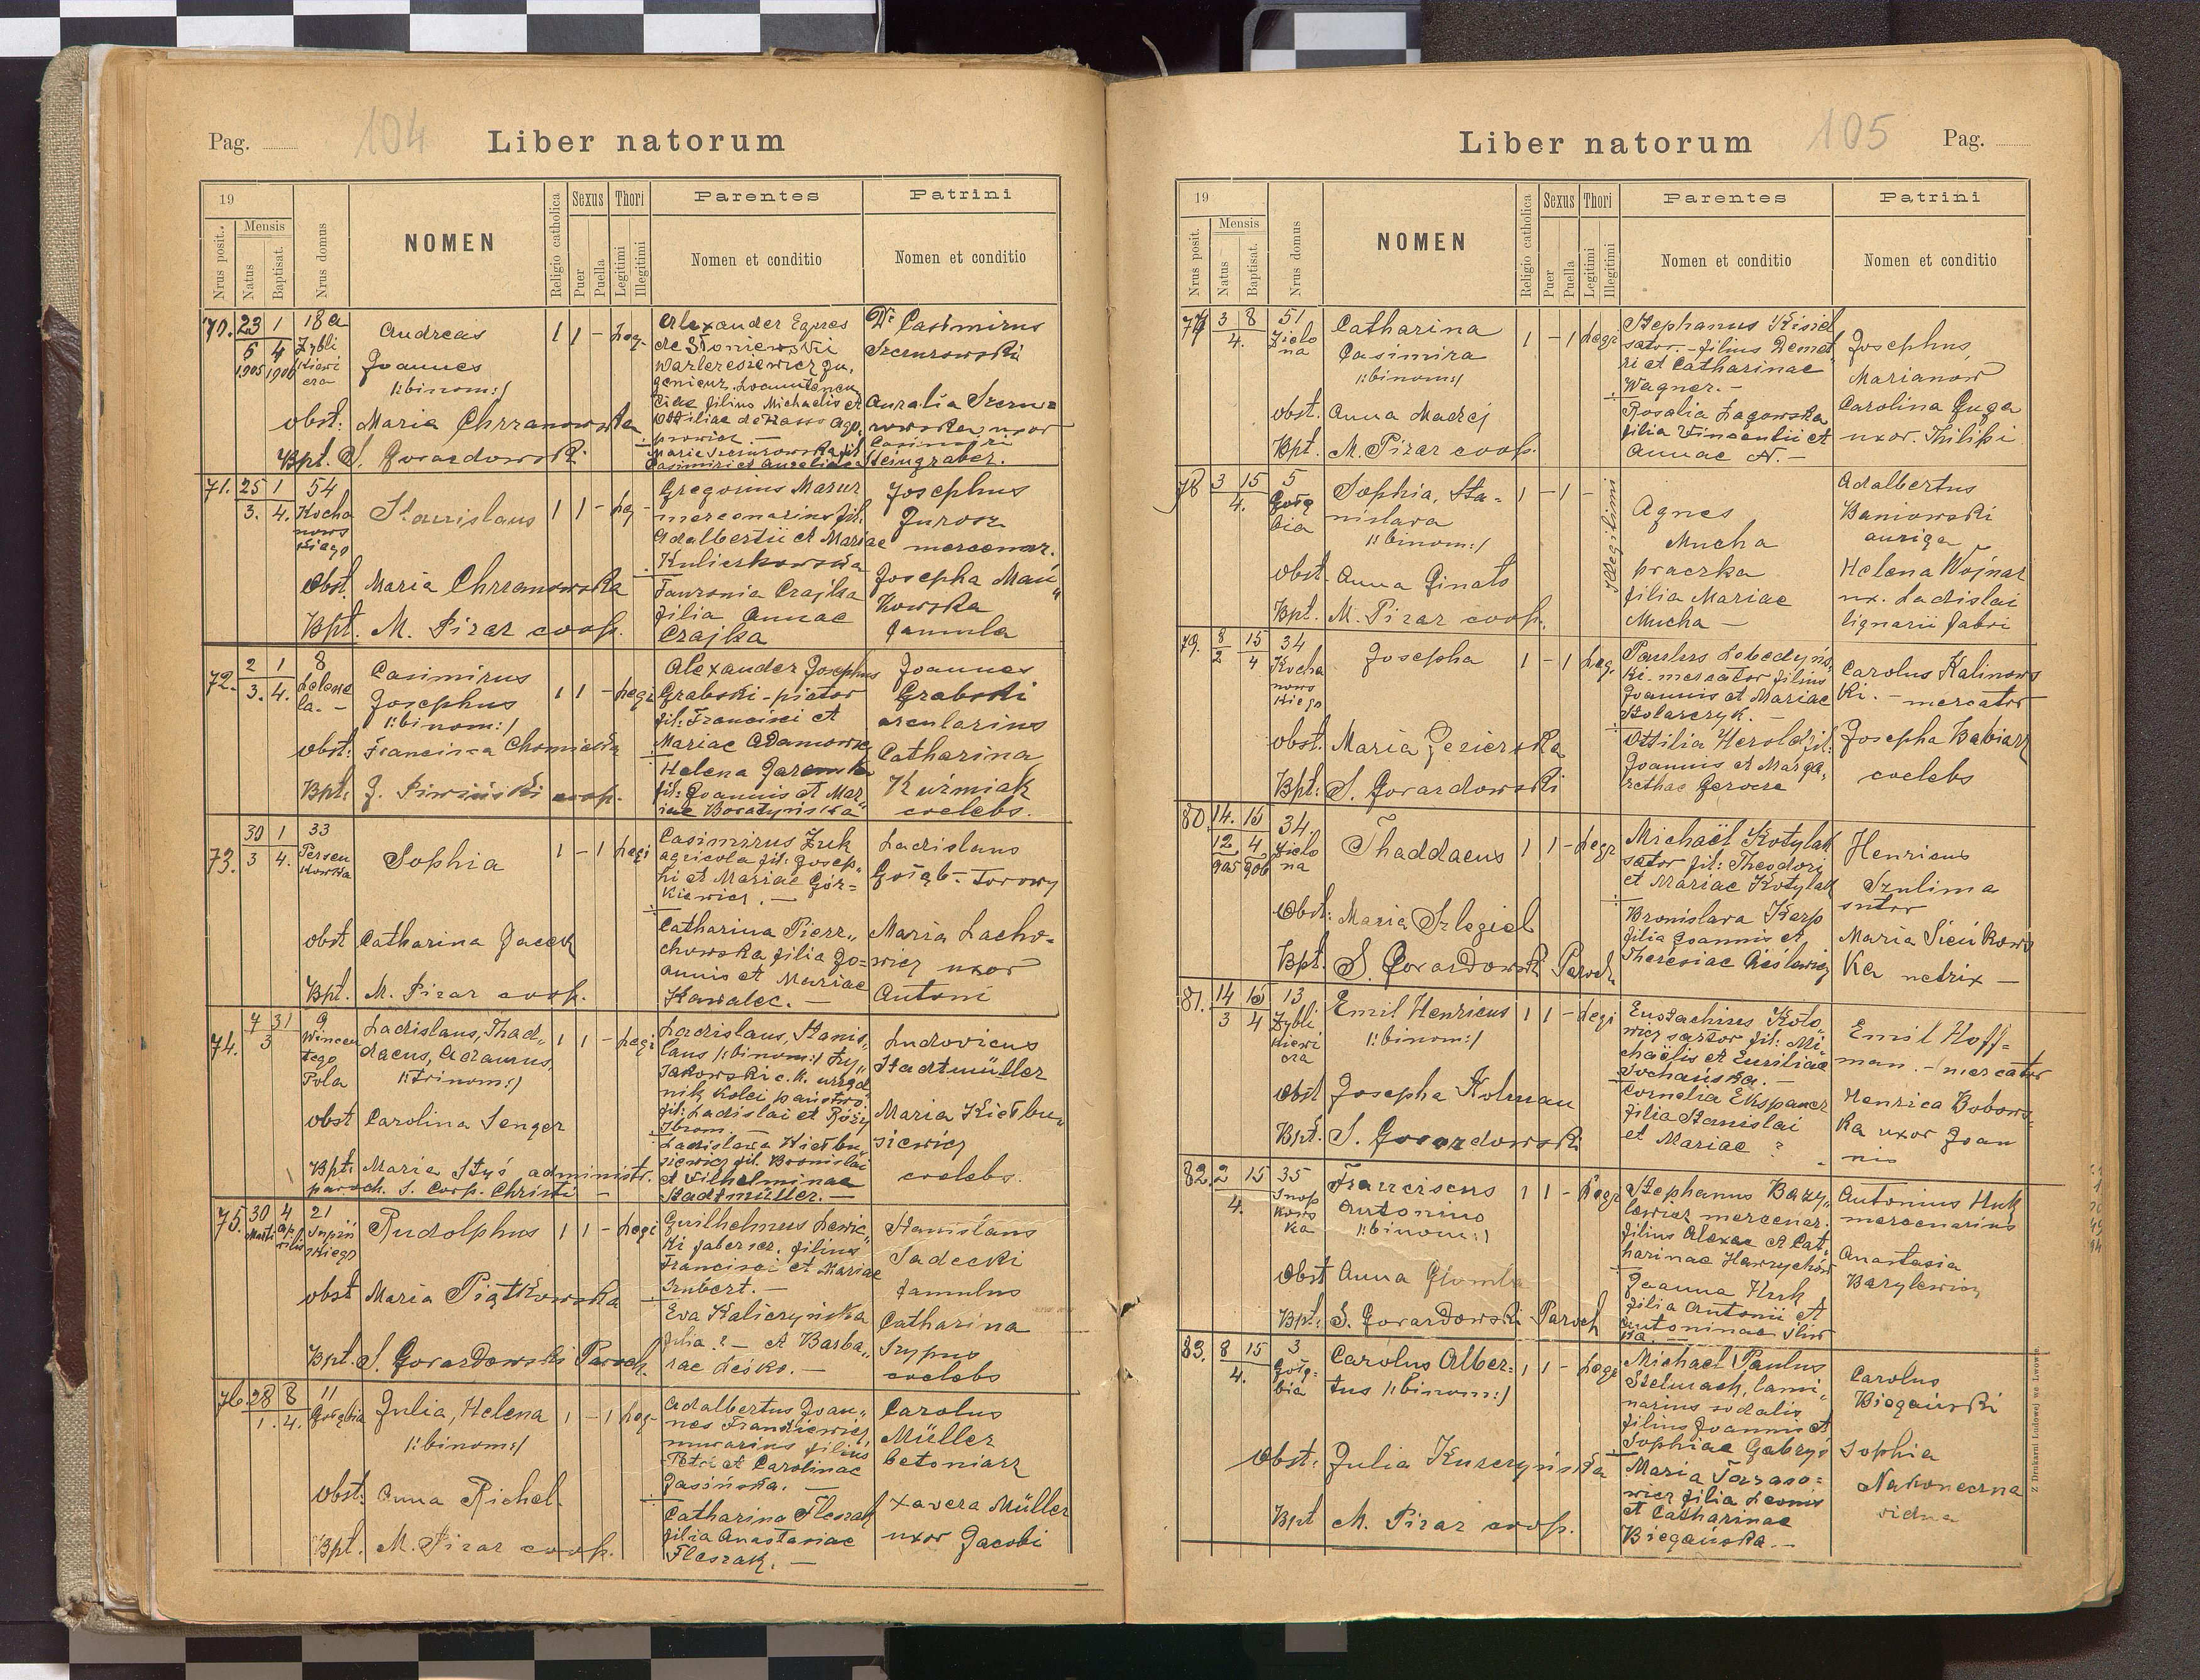 Pag. 104
Liber natorum
19
Nrus posit.
Mensis
Natus
Baptisat.
Nrus domus
NOMEN
Religio catholica
Sexus
Puer
Puella
Thori
Legitimi
Illegitimi
Parentes
Nomen et conditio
Patrini
Nomen et conditio
70. 23 1 18a
5 4
1905 1906
Andreas
Joannes
/:binom:/
1 1 - Leg.
obst: Maria Chrzanowska
Bpt. S. Gorazdowski
Alexander Eques
genieur
filius Michaelis et
Dr Casimirus
Szczurowski
Aurelia Szczu=
rowska, uxor
Casimiri
Steingraber.
71. 25 1 54
3. 4. Kocha
nows
kiego
Stanislaus
1 1 - Leg.
Obst. Maria Chrzanowska
Bpt. M. Pizar coop.
Gregorius Mazur
mercenarius fil.
Adalbertii et Mariae
Kulieszkowska
Czajka
filia Annae
Czajka
Josephus
Jurosz
mercenar.
Josepha Mań"
kowska
famula
72. 2 1 8
3. 4.
Casimirus
Josephus
/:binom:/
1 1 - Legi
obst: Francisca
Bpt: J. Piwiński coop.
Alexander Josephus
Grabski - pictor
fil: Francisci et
Mariae Adamows
Helena
fil: Joannis et Mar"
iae Boratyńska
Joannes
Grabski
arcularius
Catharina
Kuźmiak
coelebs.
73. 30 1 33
3 4. Persen
kowka
Sophia
1 - 1 Legi
obst Catharina Jacek
Bpt. M. Pizar coop.
Casimirus Żuk
agricola fil: Josep"
hi et Mariae Gór=
kiewicz. -
Catharina Pierz"
chowska filia Jo=
annis et Mariae
Kawalec. -
Ladislaus
Gołąb - torowy
Maria Lacho=
wicz uxor
Antoni
74. 7 31 9
3 Wincen
tego
Pola
Ladislaus, Thad"
daeus, Adamus,
/:trinom:/
1 1 - Legi
obst Carolina Senger
Bpt: Maria Styś administr.
paroch. S. Corp. Christi -
Ladislaus, Stanis"
laus /:binom:/
c. k. urzęd
nik kolei państwo
fil: Ladislai et Róży
Ladislawa Kiełbu"
siewicz fil. Bronislai
et Vilhelminae
Stadtmüller. -
Ludovicus
Stadtmüller
Maria Kiełbu"
siewicz
coelebs.
75. 30 4 21
Marti Apri
rilis Supiń
skiego
Rudolphus
1 1 - Legi
obst Maria Piątkowska
Bpt. S. Gorazdowski Paroch.
Guilhelmus Lewic"
ki faber ser. filius
Francisci et Mariae
Eva Kaliczyńska
filia ? - et Barba"
rae Leśko. -
Stanislaus
Sadecki
famulus
Catharina
Szypus
coelebs
76. 28 8 11
1. 4. Gołębia
Julia, Helena
/:binom:/
1 - 1 Leg-
obst: Anna Richel.
Bpt. M. Pizar coop.
Adalbertus Joan"
nes Frankiewicz
murarius filius
Petri et Carolinae
Jasińska. -
Catharina Fleszak
filia Anastasiae
Fleszak. -
Carolus
Müller
betoniarz
Xavera Müller
uxor Jacobi
Liber natorum
105 Pag.
19
Nrus posit.
Mensis
Natus
Baptisat.
Nrus domus
NOMEN
Religio catholica
Sexus
Puer
Puella
Thori
Legitimi
Illegitimi
Parentes
Nomen et conditio
Patrini
Nomen et conditio
77 3 8 51
4. Zielo
na
Catharina
Casimira
/:binom:/
1 - 1 Legi
obst. Anna Madej
Bpt. M. Pizar coop.
Stephanus Kisiel
sator. - filius Demet
ri et Catharinae
Wagner. -
Rosalia Łagowska
filia Vincentii et
Annae N. -
Josephus
Marianow
Carolina Guga
uxor. Philipi
78 3 15 5
4. Gołę
bia
Sophia, Sta=
nislava
/:binom:/
1 - 1 -
Illegitimi
obst. Anna Ginats
Bpt. M. Pizar coop.
Agnes
Mucha
praczka
filia Mariae
Mucha -
Adalbertus
Baniowski
auriga
Helena Wójnar
ux. Ladislai
lignarii fabri
79. 8 15 34
2 4 Kocha
nows
kiego
Josepha
1 - 1 Leg.
obst. Maria Jezierska
Bpt: S. Gorazdowski
Paulus Lebedyńs
ki - mercator filius
Joannis et Mariae
Stolarczyk. -
Ottilia Herold fil:
Joannis et Marga"
rethae
Carolus Kalinows
ki. - mercator
Josepha Babiarz
coelebs
80. 14. 15 34.
12 4 Zielo
905 906 na
Thaddaeus
1 1 - Legi
Obst: Maria Szlegiel
Bpt. S. Gorazdowski Paroch
Michaël Kotylak
sator fil: Theodori
et Mariae Kotylak
Bronislava Karp
filia Joannis et
Theresiae Cieślewicz
Henricus
Szulima
sutor
Maria Sieńkows
ka netrix -
81. 14 15 13
3 4 Zybli
kiewi
cza
Emil Henricus
/:binom:/
1 1 - Legi
obst Josepha Holman
Bpt. S. Gorazdowski
Eustachius Koto"
wicz sartor fil: Mi
chaëlis et Emiliae
Sochańska. -
Cornelia Ekspaner
filia Stanislai
et Mariae ?
Emil Hoff=
man. - mercator
Henrica Bobows"
ka uxor Joan
nis
82. 2 15 35
4. Snop
kows
ka
Franciscus
Antonius
/:binom:/
1 1 - Legi
Obst Anna Głomba
Bpt: S. Gorazdowski - Paroch
Stephanus Bazy"
lewicz mercenar.
filius Alexae et Cat"
harinae Hawrychów
Joanna Huk
filia Antonii et
Antoninae
Antonius Huk
mercenarius
Anastasia
Bazylewicz
83. 8 15 3
4. Gołę-
bia
Carolus Alber=
tus /:binom:/
1 1 - Legi
Obst: Julia Kurczyńska
Bpt M. Pizar coop.
Michael Paulus
Stelmach, lami"
narius sodalis
filius Joannis et
Sophiae Gabryś
Maria Tarraso=
wicz filia Leonis
et Catharinae
Biegańska. -
Carolus
Biegański
Sophia
Nakoneczna
vidua
Z Drukarni Ludowej we Lwowie.